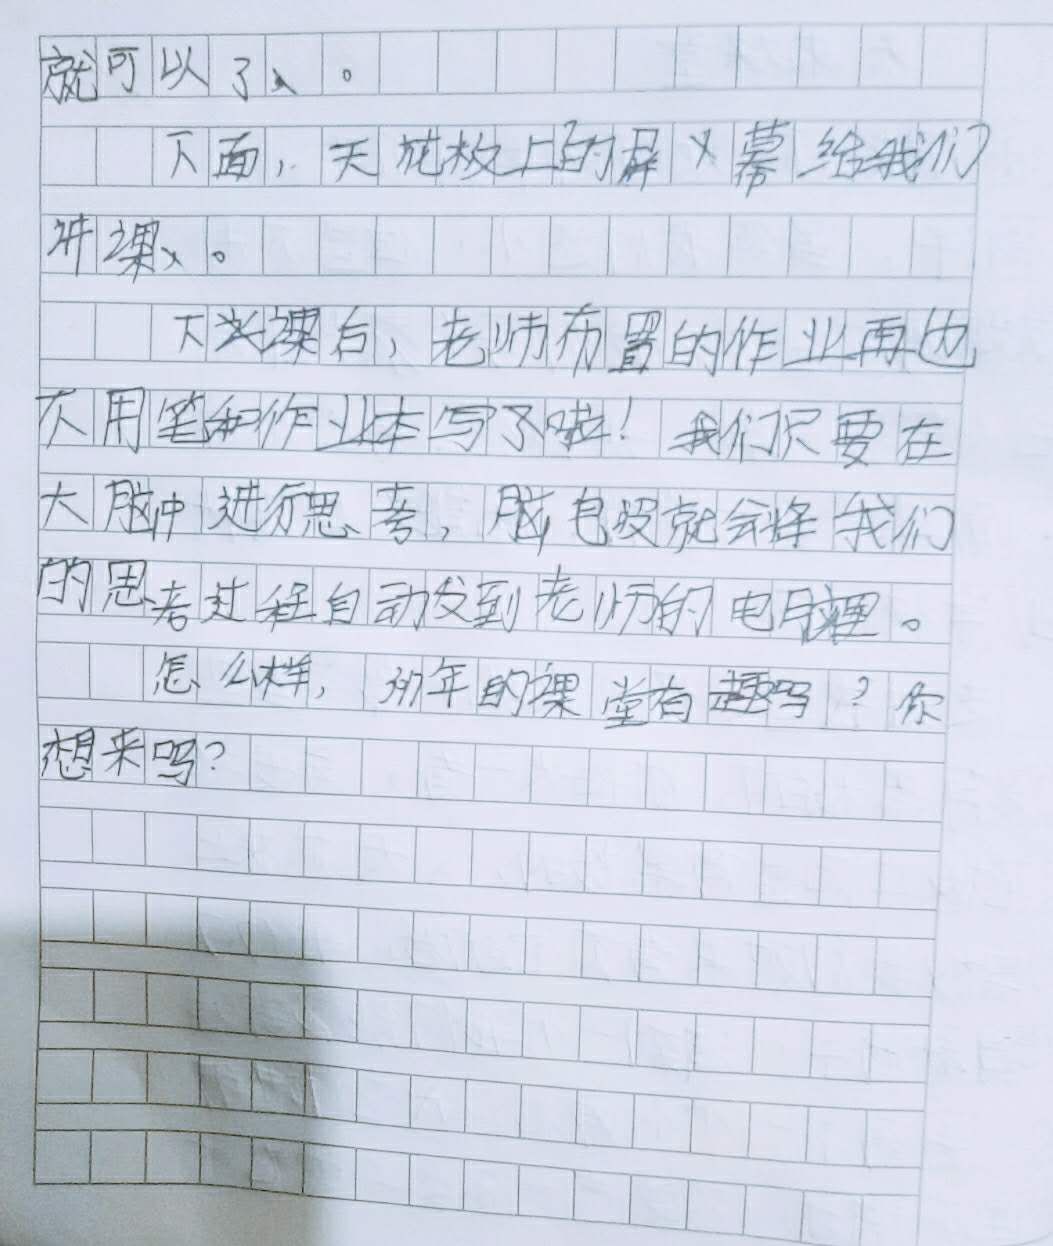 就可以了。
下面,天花板上的屏幕给我们
讲课。
下课后,老师布置的作业再也
不用笔和作业本写了啦!我们只要在
大脑中进行思考,脑电波就会将我们
的思考过程自动发到老师的电脑里。
怎么样,年的课堂有趣吗?你
想来吗?